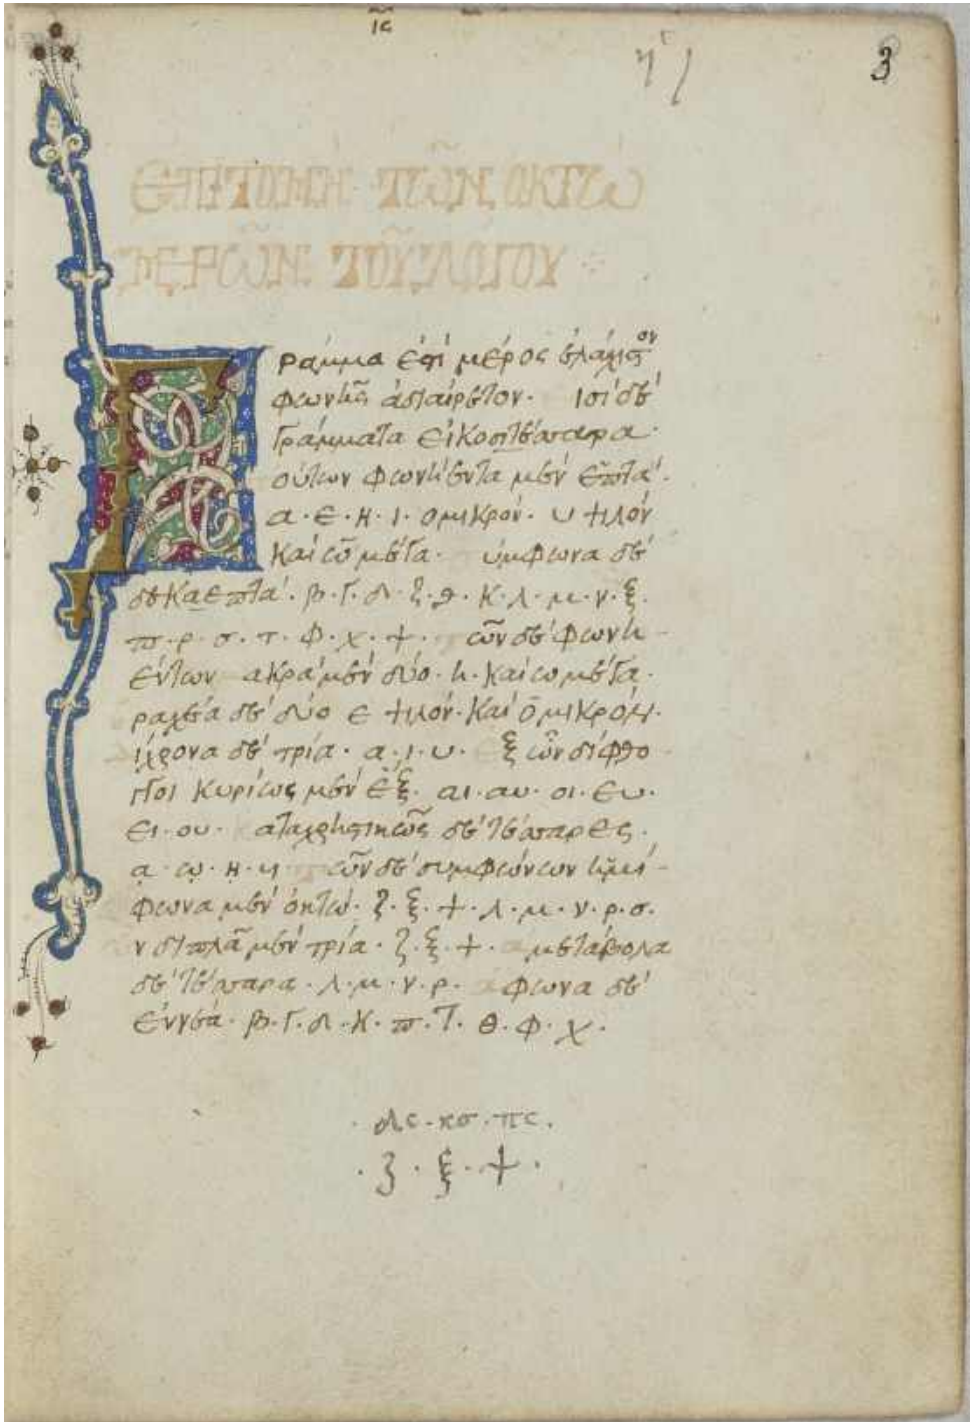 ις
3
ΕΠΙΤΟΜΗ ΤΩ͂Ν ΟΚΤΩ
ΜΕΡΩ͂Ν ΤΟΥ͂ ΛΟΓΟΥ
Γράμμα ἐστὶ μέρος ἐλάχιστον
φωνῆς ἀδιαίρετον. ισὶ δὲ
Γράμματα εἰκοσιτέσσαρα.
ούτων φωνήεντα μὲν ἑπτά.
α. ε. η. ι. ο μικρόν. υ ψιλόν
καὶ ω μέγα. ύμφωνα δὲ
δεκαεπτά. β. γ. δ. ζ. θ. κ. λ. μ. ν. ξ.
π. ρ. σ. τ. φ. χ. ψ. ῶν δὲ φωνη
έντων ακρὰ μὲν δύο. η. καὶ ω μέγα.
ραχέα δὲ δύο ε ψιλόν. καὶ ὀ μικρόν.
ίχρονα δὲ τρία. α. ι. υ. ξ ὧν δίφθο
γγοι κυρίως μὲν ἓξ. αι. αυ. οι. ευ.
ει. ου. αταχρηστικῶς δὲ τέσσαρες.
ᾳ. ῳ. ῃ. υι ῶν δὲ συμφώνων ἡμί-
φωνα μὲν ὀκτώ. ζ. ξ. ψ. λ. μ. ν. ρ. σ.
ν διπλᾶ μὲν τρία. ζ. ξ. ψ. αμετάβολα
δὲ τέσσαρα. λ. μ. ν. ρ. ἄφωνα δὲ
ἐννέα. β. γ. δ. κ. π. τ. θ. φ. χ.
δς. κσ. πς.
. ζ. ξ. ψ.